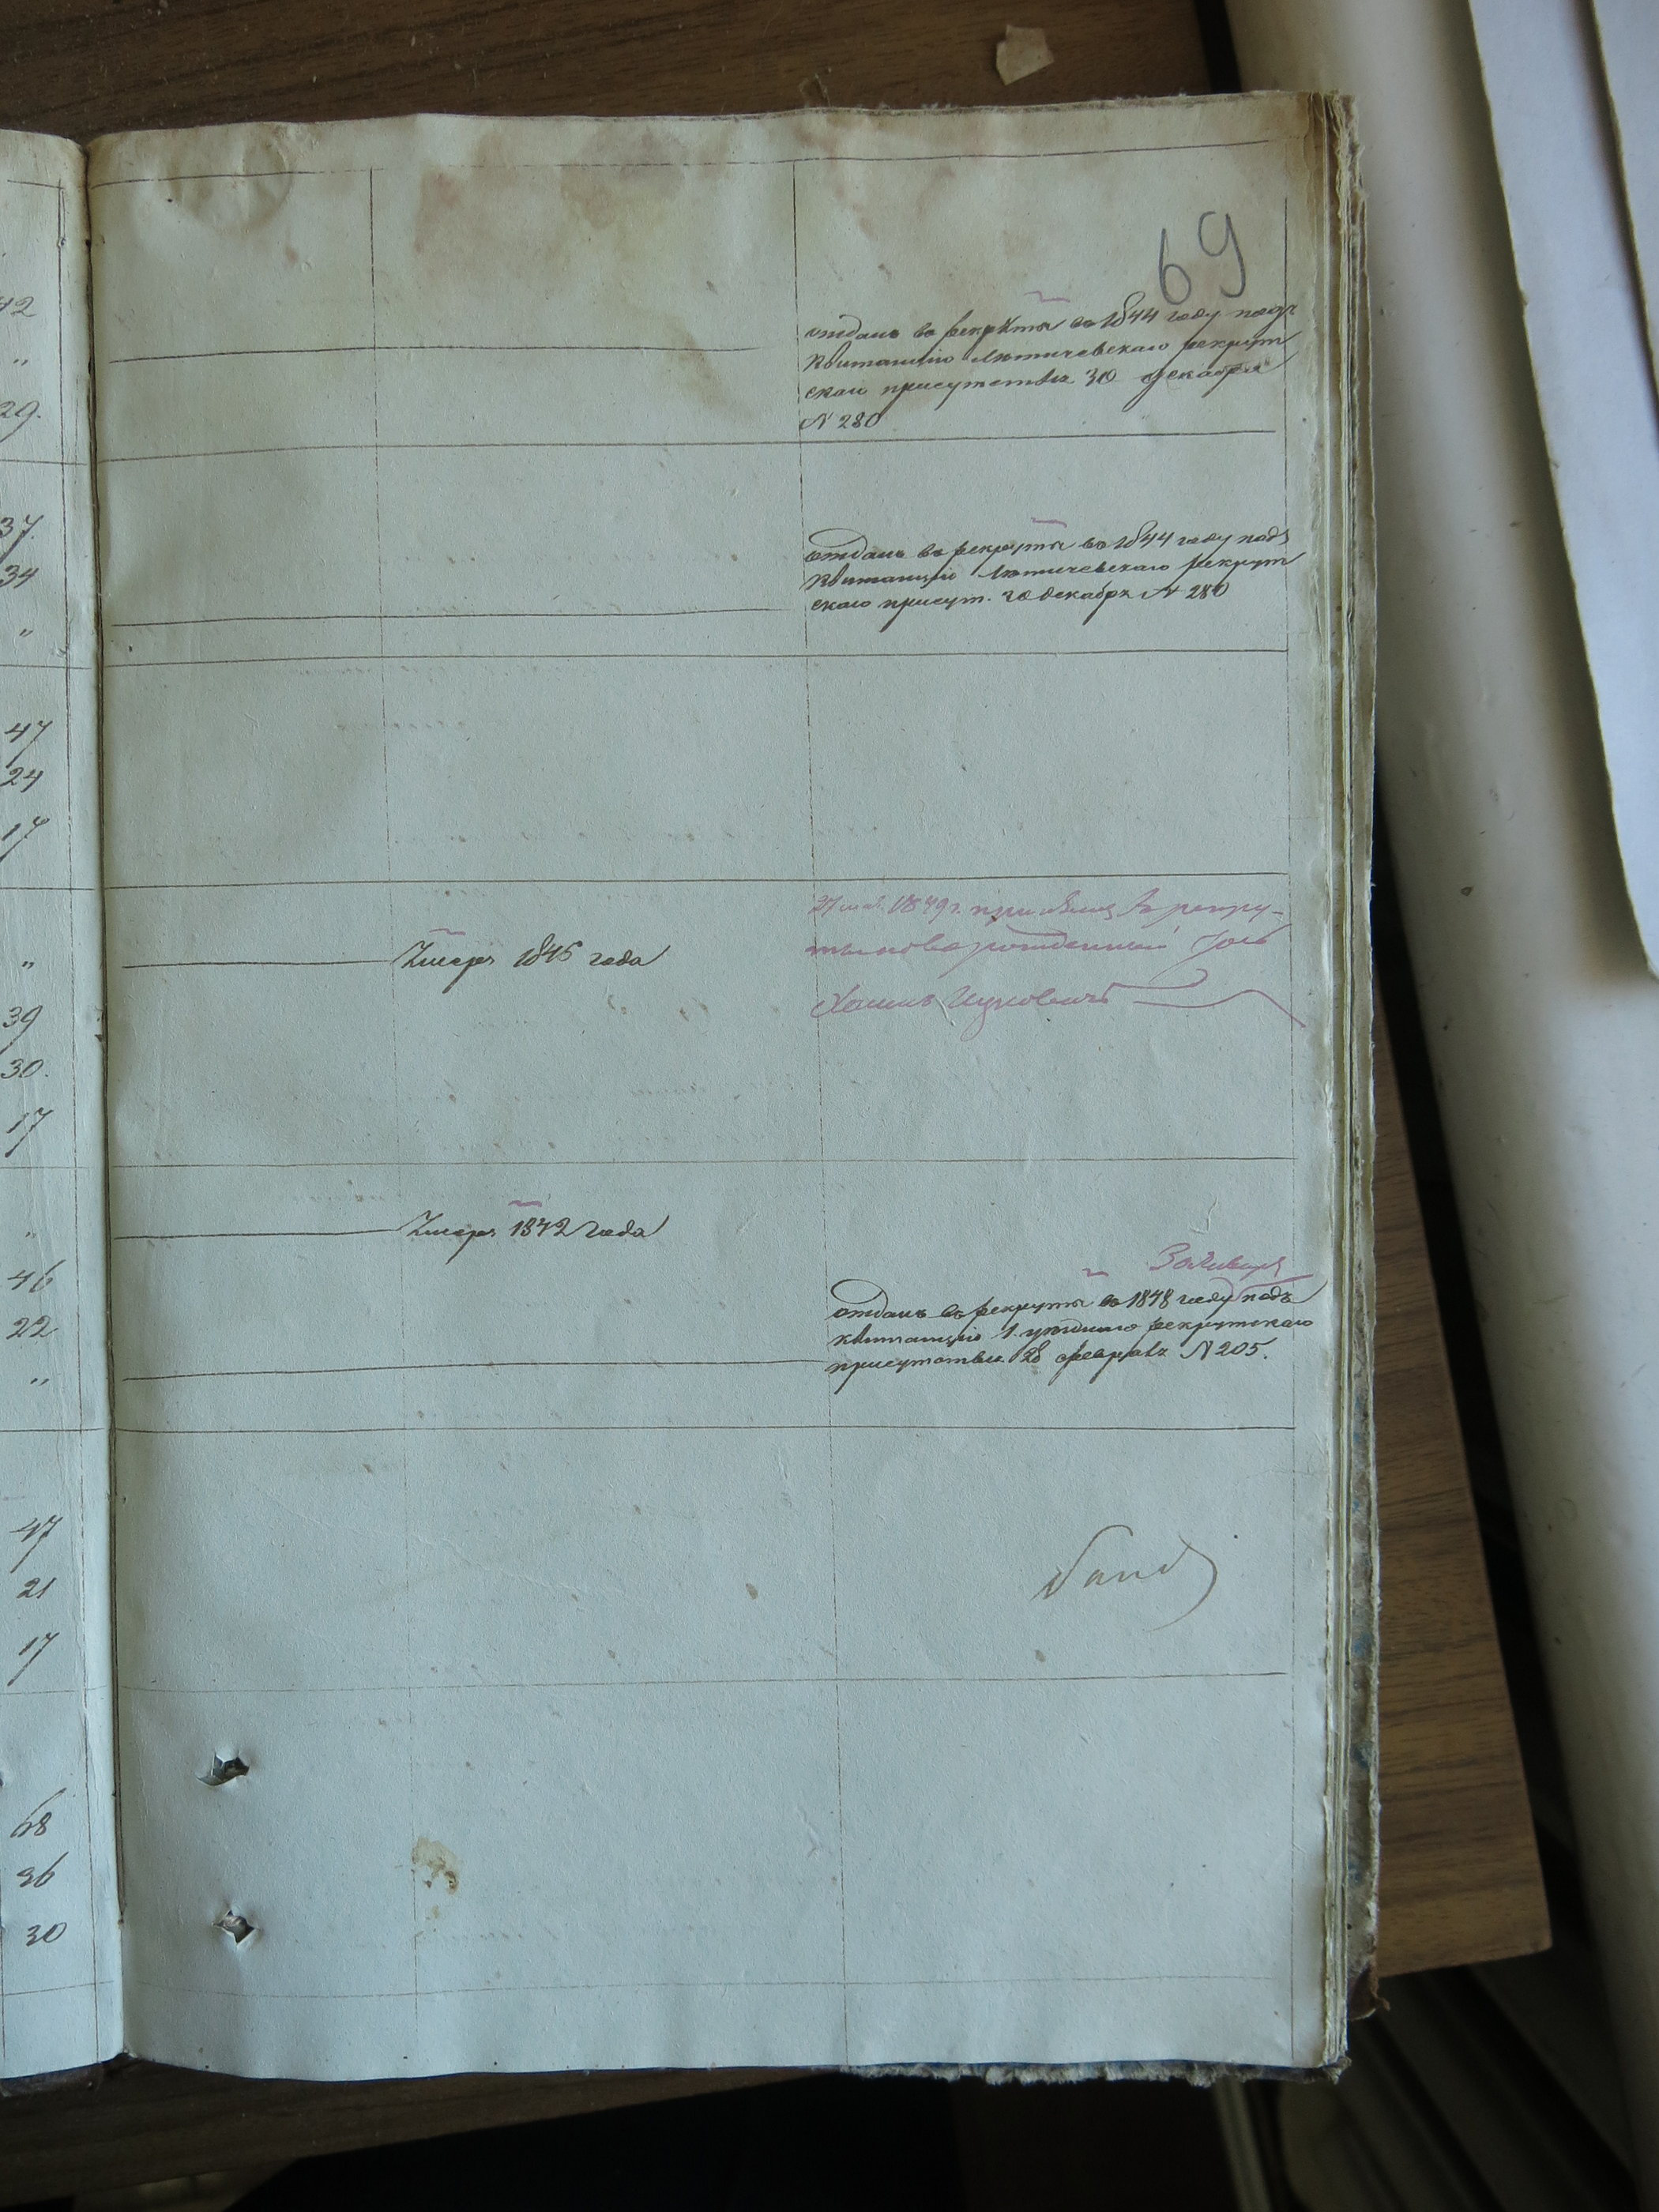 69
42
"
29.
отданъ въ рекруты въ 1844 году подъ
квитанцію Летичевскаго рекрут
скаго присутствія 30 декабря
№ 280
37.
34
"
отданъ въ рекруты въ 1844 году подъ
квитанцію Летичевскаго рекрут
скаго присут. декабря № 280
47
24
17
"
39
30.
17
Умеръ 1846 года
1849 г. рекру-
ты
"
46
22
"
Умеръ 1842 года
отданъ въ рекруты въ 1848 году подъ
квитанцію 1. рекрутскаго
присутствія 28 февраля № 205.
47
21
17
68
36
30